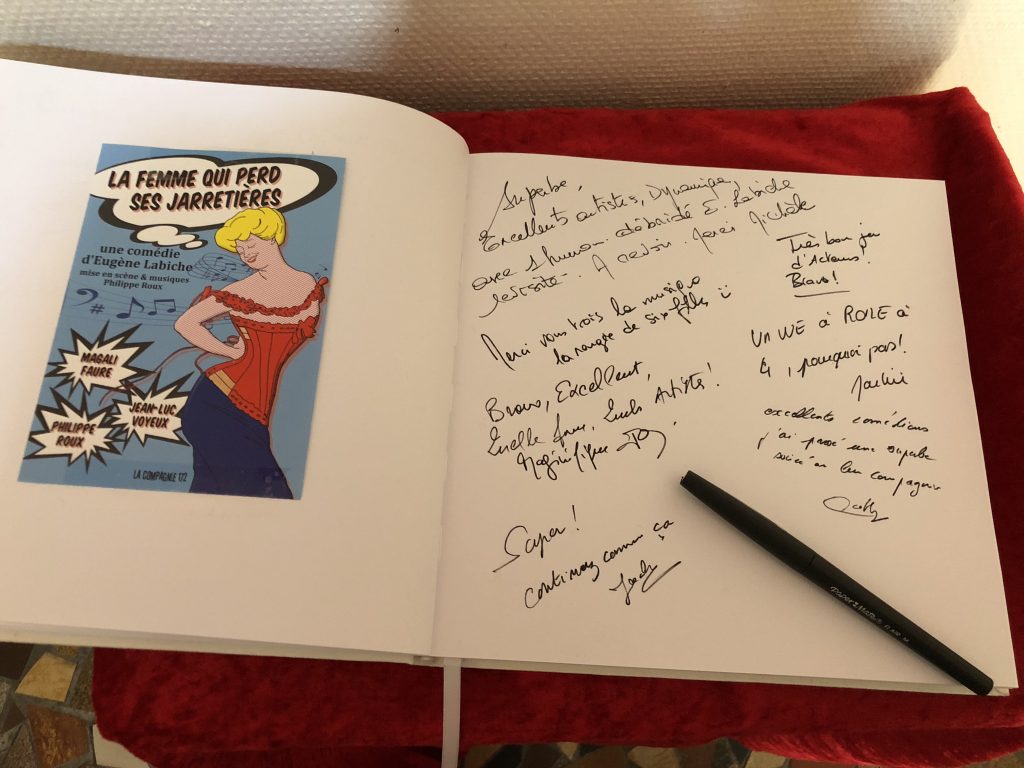 LA FEMME QUI PERD
SES JARRETIÈRES
une comédie
d'Eugène Labiche
mise en scène & musiques
Philippe Roux
MAGALI
FAURE
JEAN-LUC
VOYEUX
PHILIPPE
ROUX
LA COMPAGNIE 1/2
Superbe,
Excellents artistes, Dynamique,
avec l'humour débridé E. Labiche
revisité. A revoir. Merci Michèle
Merci vous trois la musique
la rangée de six filles
Bravo, Excellent,
Quelle Artistes!
Magnifique
Super!
continuez comme ça
Très bon jeu
d'Acteurs!
Bravo!
UN WE à ROLE à
4, pourquoi pas!
excellents comédiens
j'ai passé une superbe
soirée en leur compagnie
Paper Mate